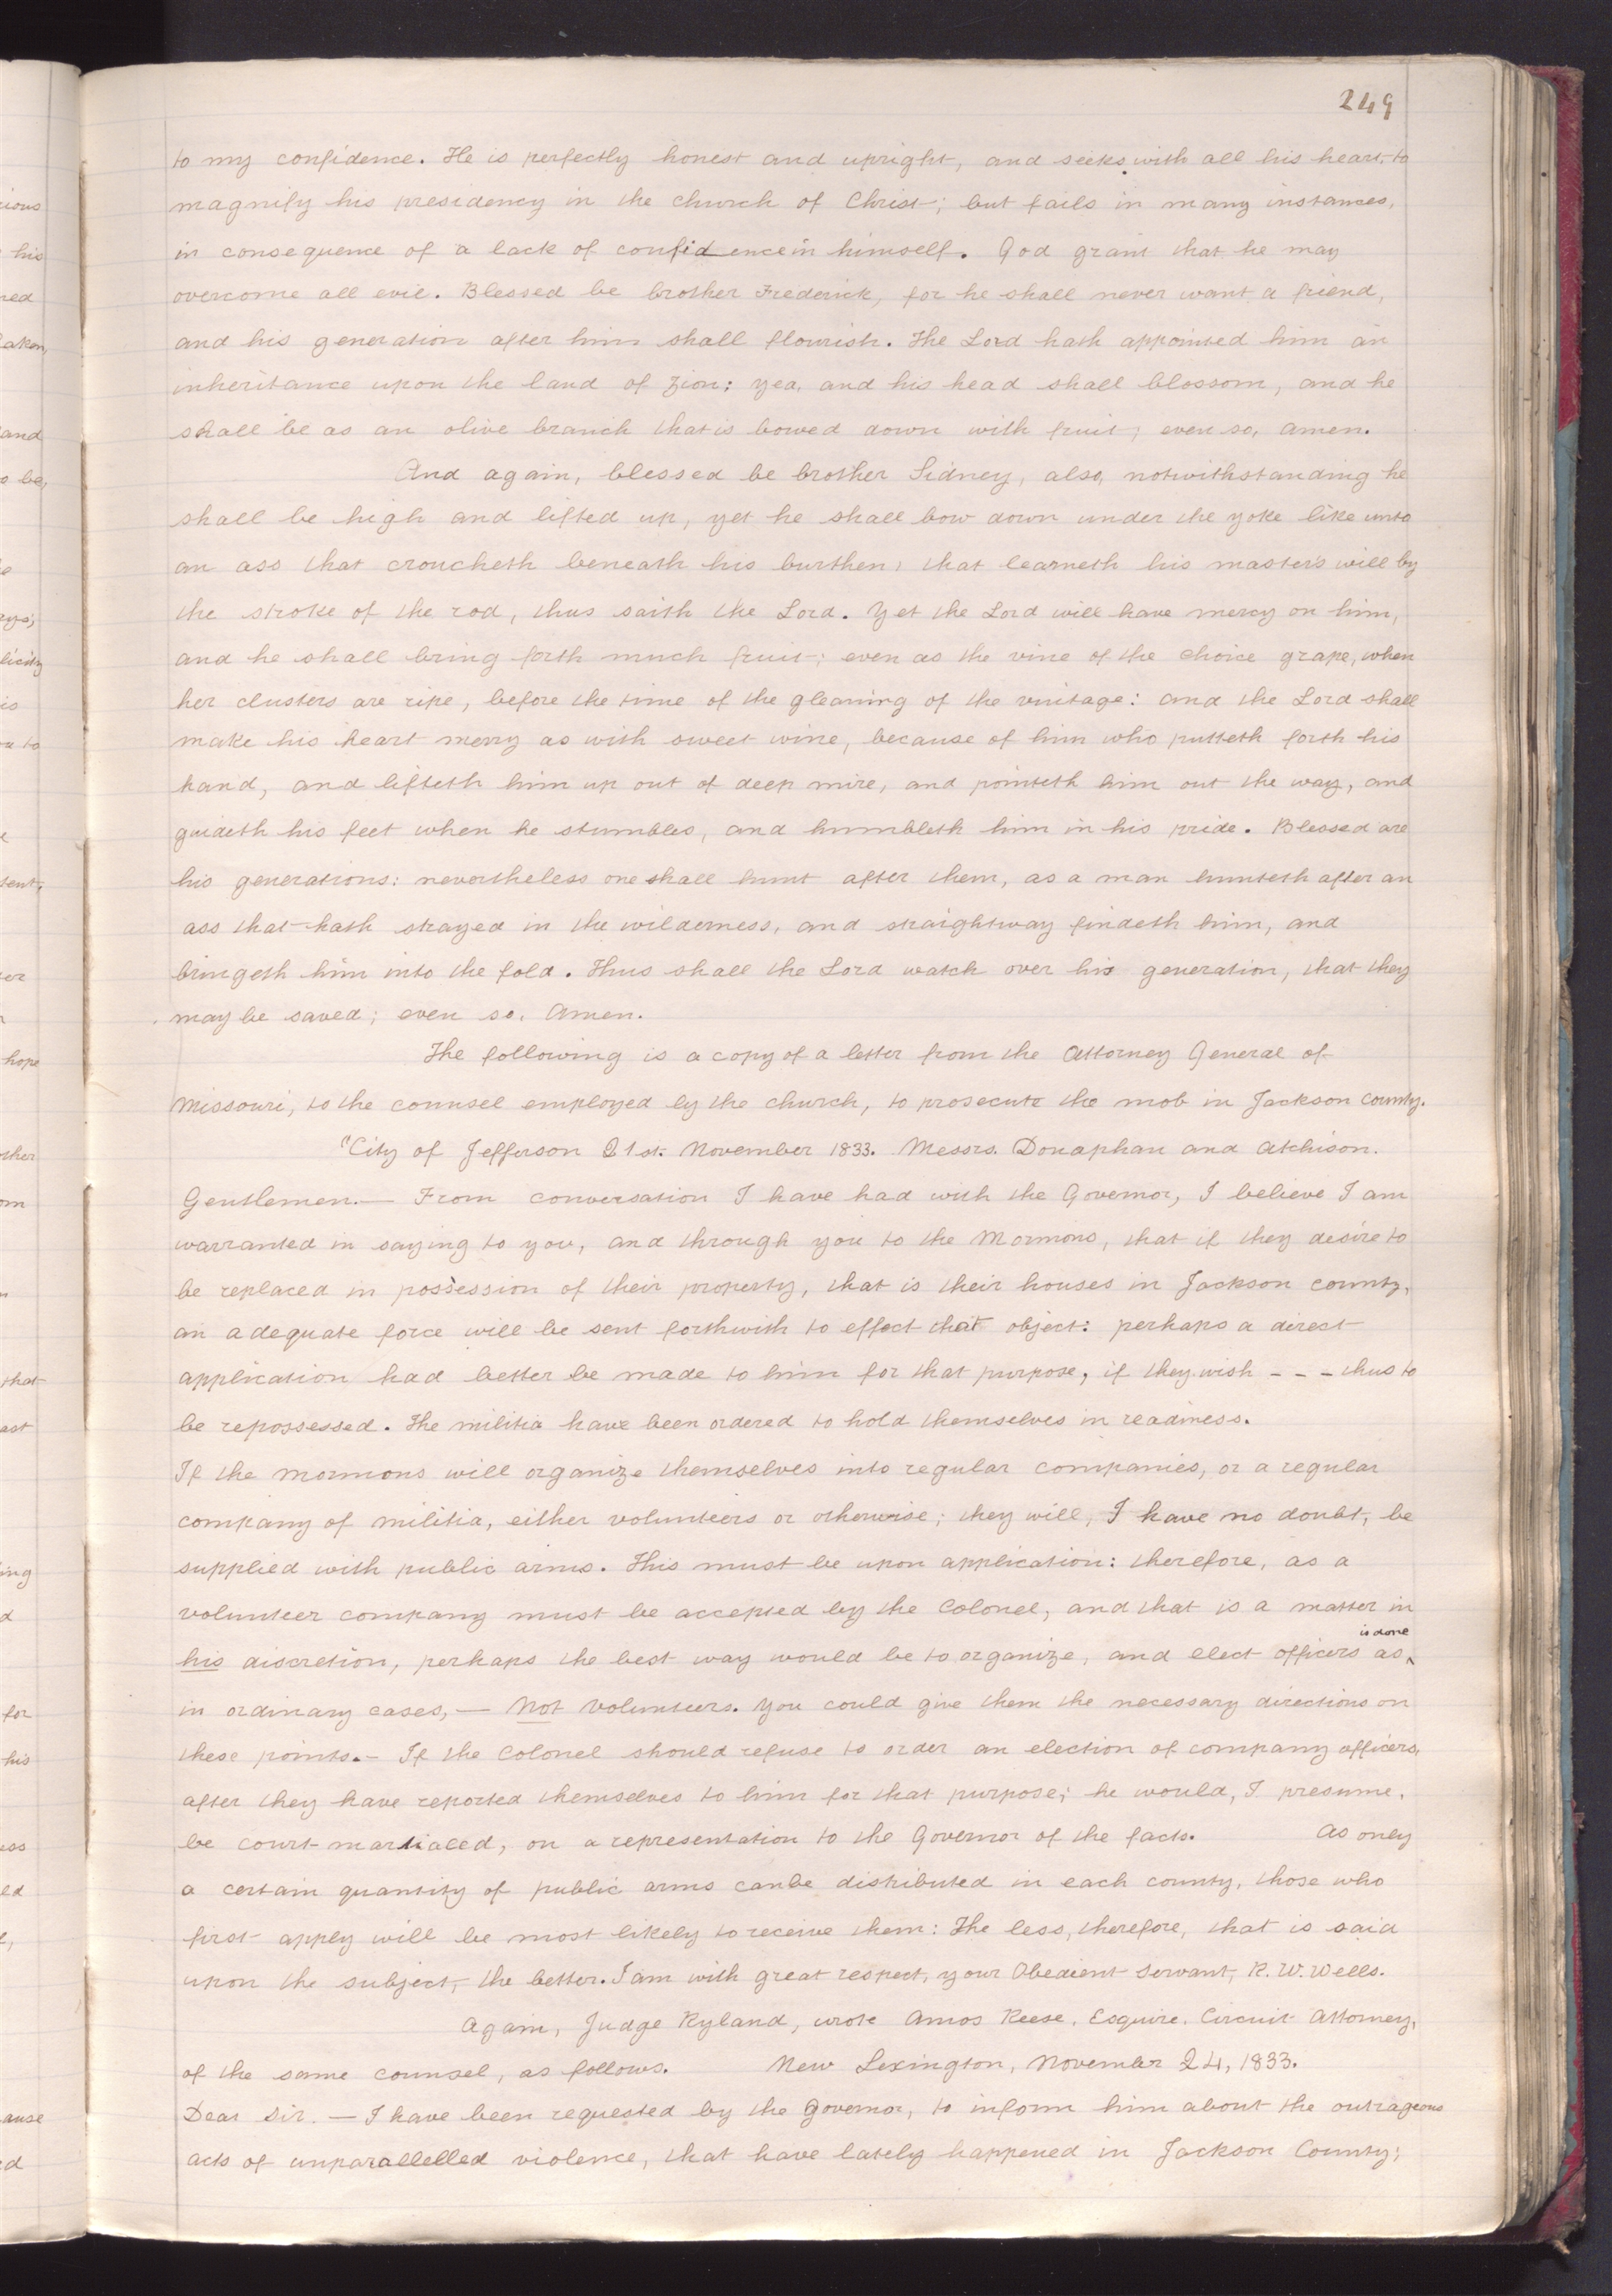 249
to my confidence. He is perfectly honest and upright, and seeks with all his heart, to
magnify his presidency in the church of Christ; but fails in many instances,
in consequence of a lack of confidence in himself. God grant that he may
overcome all evil. Blessed be brother Frederick, for he shall never want a friend,
and his generation after him shall flourish. The Lord hath appointed him an
inheritance upon the land of Zion: yea, and his head shall blossom, and he
shall be as an olive branch that is bowed down with fruit; even so, amen.
And again, blessed be brother Sidney, also, notwithstanding he
shall be high and lifted up, yet he shall bow down under the yoke like unto
an ass that croucheth beneath his burthen, that learneth his master's will by
the stroke of the rod, thus saith the Lord. Yet the Lord will have mercy on him,
and he shall bring forth much fruit; even as the vine of the choice grape, when
her clusters are ripe, before the time of the gleaning of the vintage: and the Lord shall
make his heart merry as with sweet wine, because of him who putteth forth his
hand, and lifteth him up out of deep mire, and pointeth him out the way, and
guideth his feet when he stumbles, and humbleth him in his pride. Blessed are
his generations: nevertheless one shall hunt after them, as a man hunteth after an
ass that hath strayed in the wilderness, and straightway findeth him, and
bringeth him into the fold. Thus shall the Lord watch over his generation, that they
may be saved; even so. Amen.
The following is a copy of a letter from the Attorney General of
Missouri, to the counsel employed by the church, to prosecute the mob in Jackson County.
"City of Jefferson 21st. November 1833. Messrs. Donaphan and Atchison.
Gentlemen.— From conversation I have had with the Governor, I believe I am
warranted in saying to you, and through you to the Mormons, that if they desire to
be replaced in possession of their property, that is their houses in Jackson county,
an adequate force will be sent forthwith to effect that object: perhaps a direct
application had better be made to him for that purpose, if they wish - - - thus to
be repossessed. The militia have been ordered to hold themselves in readiness.
If the Mormons will organize themselves into regular companies, or a regular
company of militia, either volunteers or otherwise; they will, I have no doubt, be
supplied with public arms. This must be upon application: therefore, as a
volunteer company must be accepted by the Colonel, and that is a matter in
is done
his discretion, perhaps the best way would be to organize, and elect officers as
in ordinary cases,— Not Volunteers. You could give them the necessary directions on
these points.— If the Colonel should refuse to order an election of company officers,
after they have reported themselves to him for that purpose; he would, I presume,
be court-martialed, on a representation to the Governor of the facts. As only
a certain quantity of public arms canbe distributed in each county, those who
first apply will be most likely to receive them: The less, therefore, that is said
upon the subject, the better. I am with great respect, your Obedient Servant, R. W. Wells.
Again, Judge Ryland, wrote Amos Reese, Esquire, Circuit Attorney,
of the same counsel, as follows. New Lexington, November 24, 1833.
Dear Sir. — I have been requested by the Governor, to inform him about the outrageous
acts of unparallelled violence, that have lately happened in Jackson County;